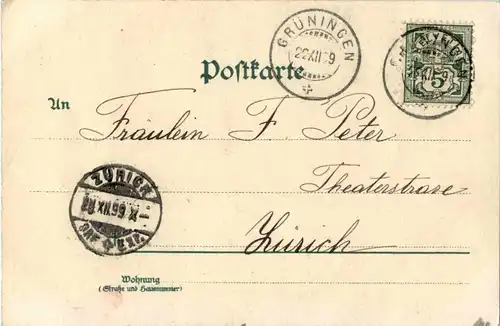 GRÜNINGEN
22 XII 99
Postkarte
GRÜNINGEN
5
An
Fräulein F. Peter
Theaterstrasse
Zürich
ZÜRICH
XII.99
Wohnung
(Straße und Hausnummer)